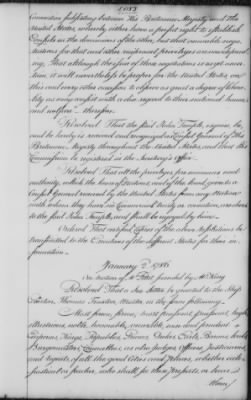 Convention subsisting between His Britannic Majesty and the
United States, whereby either have a perfect right to establish
Consuls in the dominions of the other, but that amicable nego-
tiations for that and other reciprocal privileges are now depend-
ing. That although the issue of those negotiations is as yet uncer-
tain, it will nevertheless be proper for the United States, on
this and every other occasion to observe as great a degree of libera-
lity as may consist with a due regard to their national honor
and welfare. Therefore
Resolved That the said John Temple, esquire, be,
and he hereby is received and recognized as Consul General of His
Britannic Majesty throughout the United States, and that his
Commission be registered in the Secretary's Office.
Resolved That all the privileges, pre-eminence and
authority, which the laws of nations and of the land, give to a
Consul General received by the United States from any nation
with whom they have no Commercial treaty or convention, are due
to the said John Temple, and shall be enjoyed by him.
Ordered That certified Copies of the above resolutions be
transmitted to the Executives of the different States for their in-
formation.
January 2 1786
On motion of Mr. seconded by Mr. King
Resolved That a Sea letter be granted to the Ship
Thomas Truxtun, Master, in the form following
Most serene, serene, most puissant, puissant, high,
illustrious, noble, honorable, venerable, wise and prudent
Emperors, Kings, Republics, Princes, Dukes, Earls, Barons, Lords,
Burgomasters, Councillors, as also Judges, Officers, Justiciaries
and Regents of all the good Cities and places, whether eccle-
siastical or secular, who shall see these patents, or hear
them